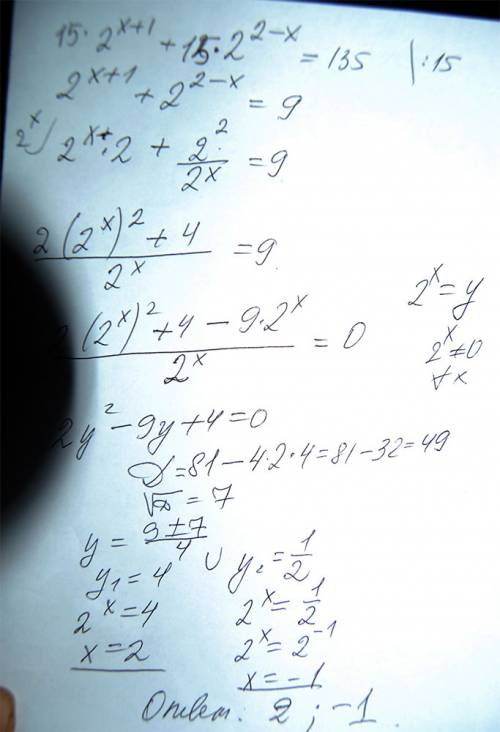 15·2^{x+1} + 15·2^{2-x} = 135 |:15
2^{x+1} + 2^{2-x} = 9
2^x) 2^x·2 + 2^2/2^x = 9
(2(2^x)^2 + 4)/2^x = 9
(2(2^x)^2 + 4 - 9·2^x)/2^x = 0
2^x = y
2^x ≠ 0
∀x
2y^2 - 9y + 4 = 0
D = 81 - 4·2·4 = 81 - 32 = 49
√D = 7
y = (9 ± 7)/4
y_1 = 4 ∪ y_2 = 1/2
2^x = 4
x = 2
2^x = 1/2
2^x = 2^{-1}
x = -1
Ответ: 2; -1.